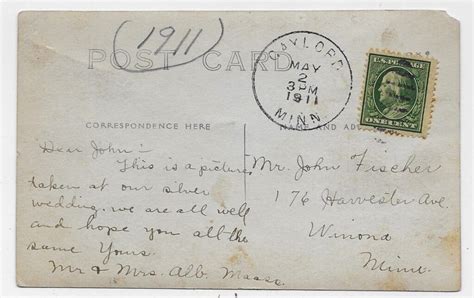 (1911)
POST CARD
GAYLORD
MAY
2
3 PM
1911
MINN
U.S. POSTAGE
ONE CENT
CORRESPONDENCE HERE
NAME AND ADDRESS
Dear John:-
This is a picture
taken at our silver
wedding. we are all well
and hope you all the
same Yours.
Mr & Mrs. Alb. Maass
Mr. John Fischer
176 Harvester Ave.
Winona
Minn.